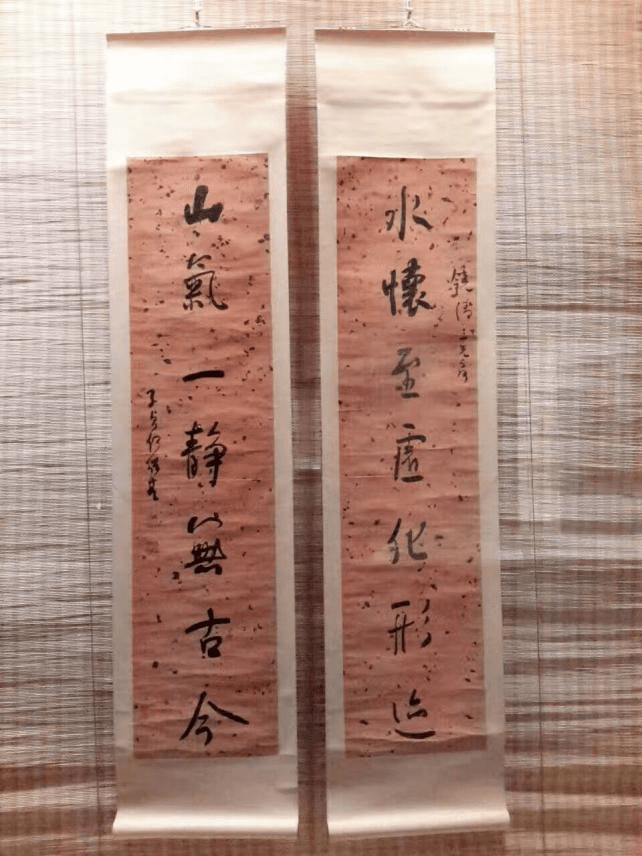 水懷至虛化形迹
山氣一靜無古今